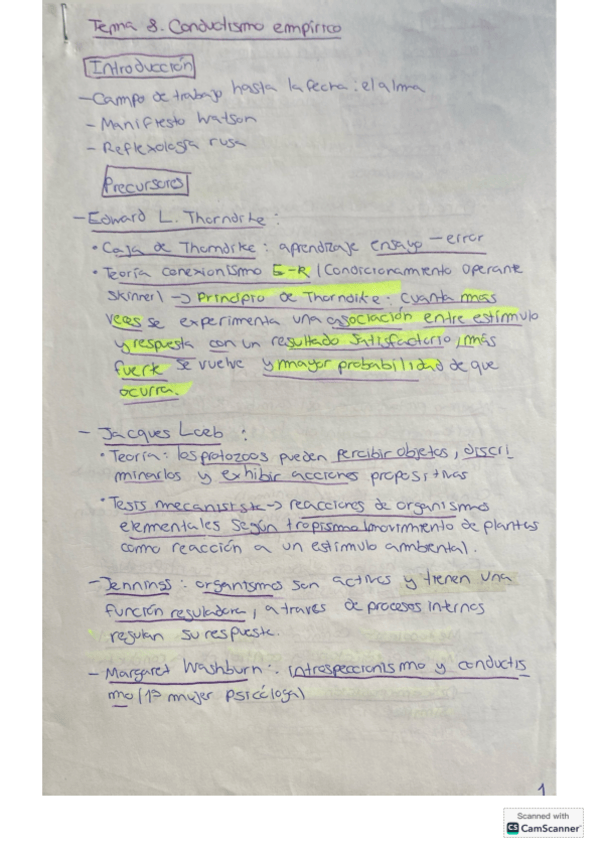 Tema 8. Conductismo empírico
Introducción
- Campo de trabajo hasta la fecha: el alma
- Manifiesto Watson
- Reflexología rusa
Precursores
- Edward L. Thorndike:
• Caja de Thorndike: aprendizaje ensayo-error
• Teoría conexionismo E-R (Condicionamiento operante
Skinner) -> Principio de Thorndike: Cuanta más
veces se experimenta una asociación entre estímulo
y respuesta con un resultado satisfactorio, más
fuerte se vuelve y mayor probabilidad de que
ocurra.
- Jacques Loeb:
• Teoría: los protozoos pueden percibir objetos, discri
minarlos y exhibir acciones propositivas
• Tesis mecanicista -> reacciones de organismos
elementales según tropismo (movimiento de plantas
como reacción a un estímulo ambiental.
- Jennings: organismos son activos y tienen una
función reguladora, a través de procesos internos
regulan su respuesta.
- Margaret Washburn: introspeccionismo y conductis
mo (1ª mujer psicóloga)
1
Scanned with
CS CamScanner